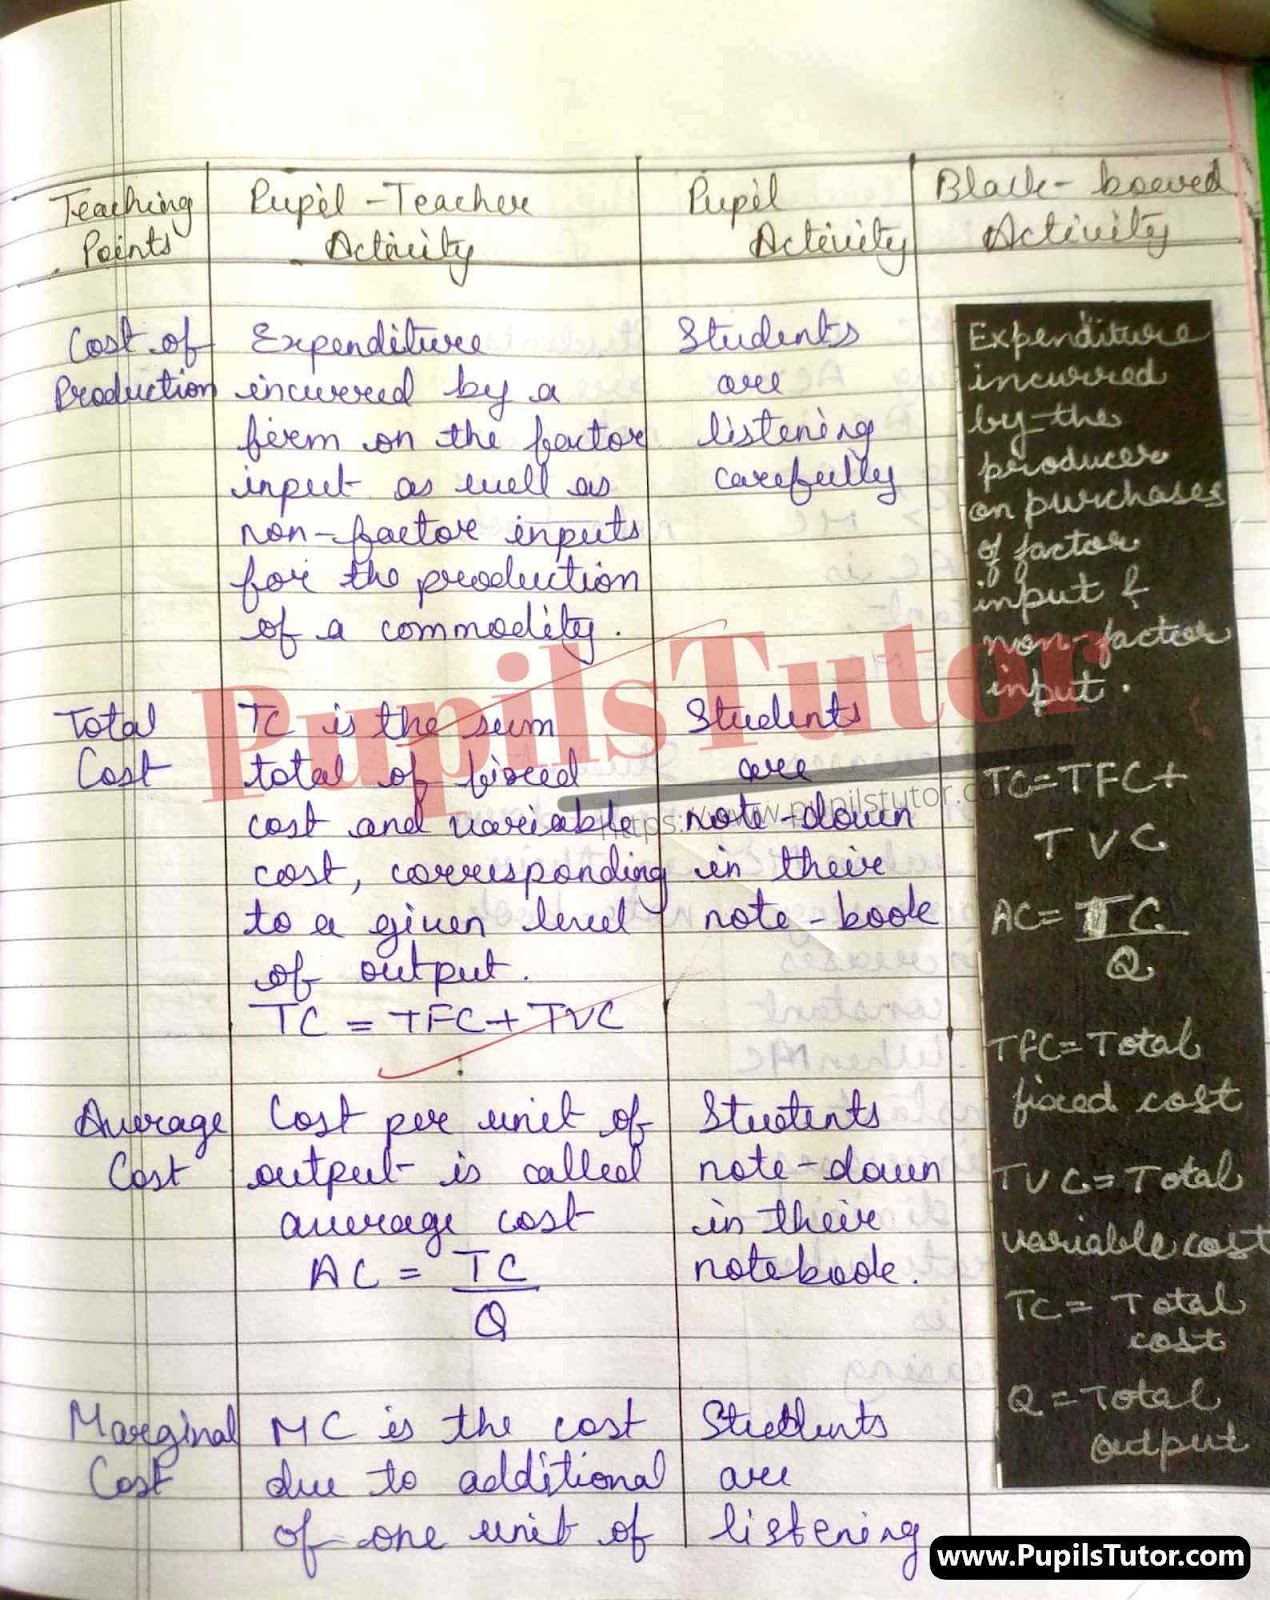 Teaching
Points
Pupil - Teacher
Activity
Pupil
Activity
Black - board
Activity
Cost of
Production
Expenditure
incurred by a
firm on the factor
input as well as
non-factor inputs
for the production
of a commodity.
Students
are
listening
carefully
Expenditure
incurred
by the
producer
on purchases
of factor
input &
non-factor
input.
Total
Cost
TC is the sum
total of fixed
cost and variable
cost, corresponding
to a given level
of output.
TC = TFC + TVC
Students
are
note-down
in their
note-book
TC = TFC +
TVC
AC = TC
Q
TFC = Total
fixed cost
TVC = Total
variable cost
TC = Total
cost
Q = Total
output
Average
Cost
Cost per unit of
output is called
average cost
AC = TC
Q
Students
note-down
in their
notebook.
Marginal
Cost
MC is the cost
due to additional
of one unit of
Students
are
listening
PupilsTutor
https://www.pupilstutor.co
www.PupilsTutor.com